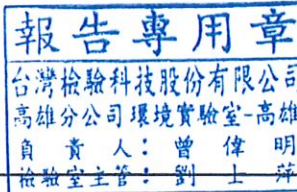 報告專用章
台灣檢驗科技股份有限公司
高雄分公司環境實驗室-高雄
負責人：曾偉明
檢驗室主管：劉上萍